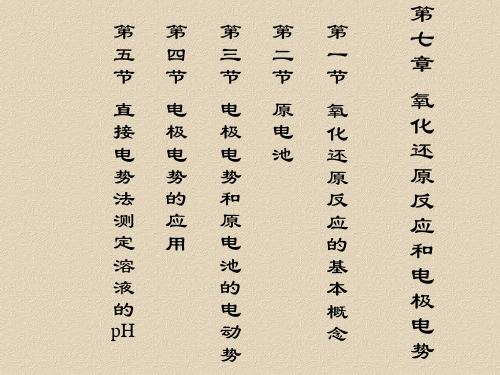 第七章 氧化还原反应和电极电势
第一节 氧化还原反应的基本概念
第二节 原电池
第三节 电极电势和原电池的电动势
第四节 电极电势的应用
第五节 直接电势法测定溶液的pH